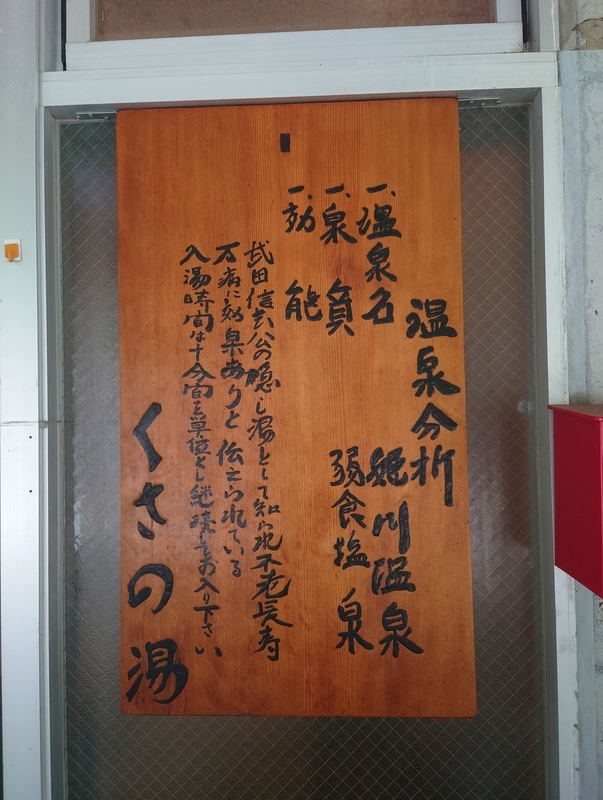 温泉分析
一、温泉名 姫川温泉
一、泉質 弱食塩泉
一、効能
武田信玄公の隠し湯として知られ不老長寿
万病に効果ありと伝えられている
入湯時間は十分間を単位とし継続してお入り下さい
くさの湯